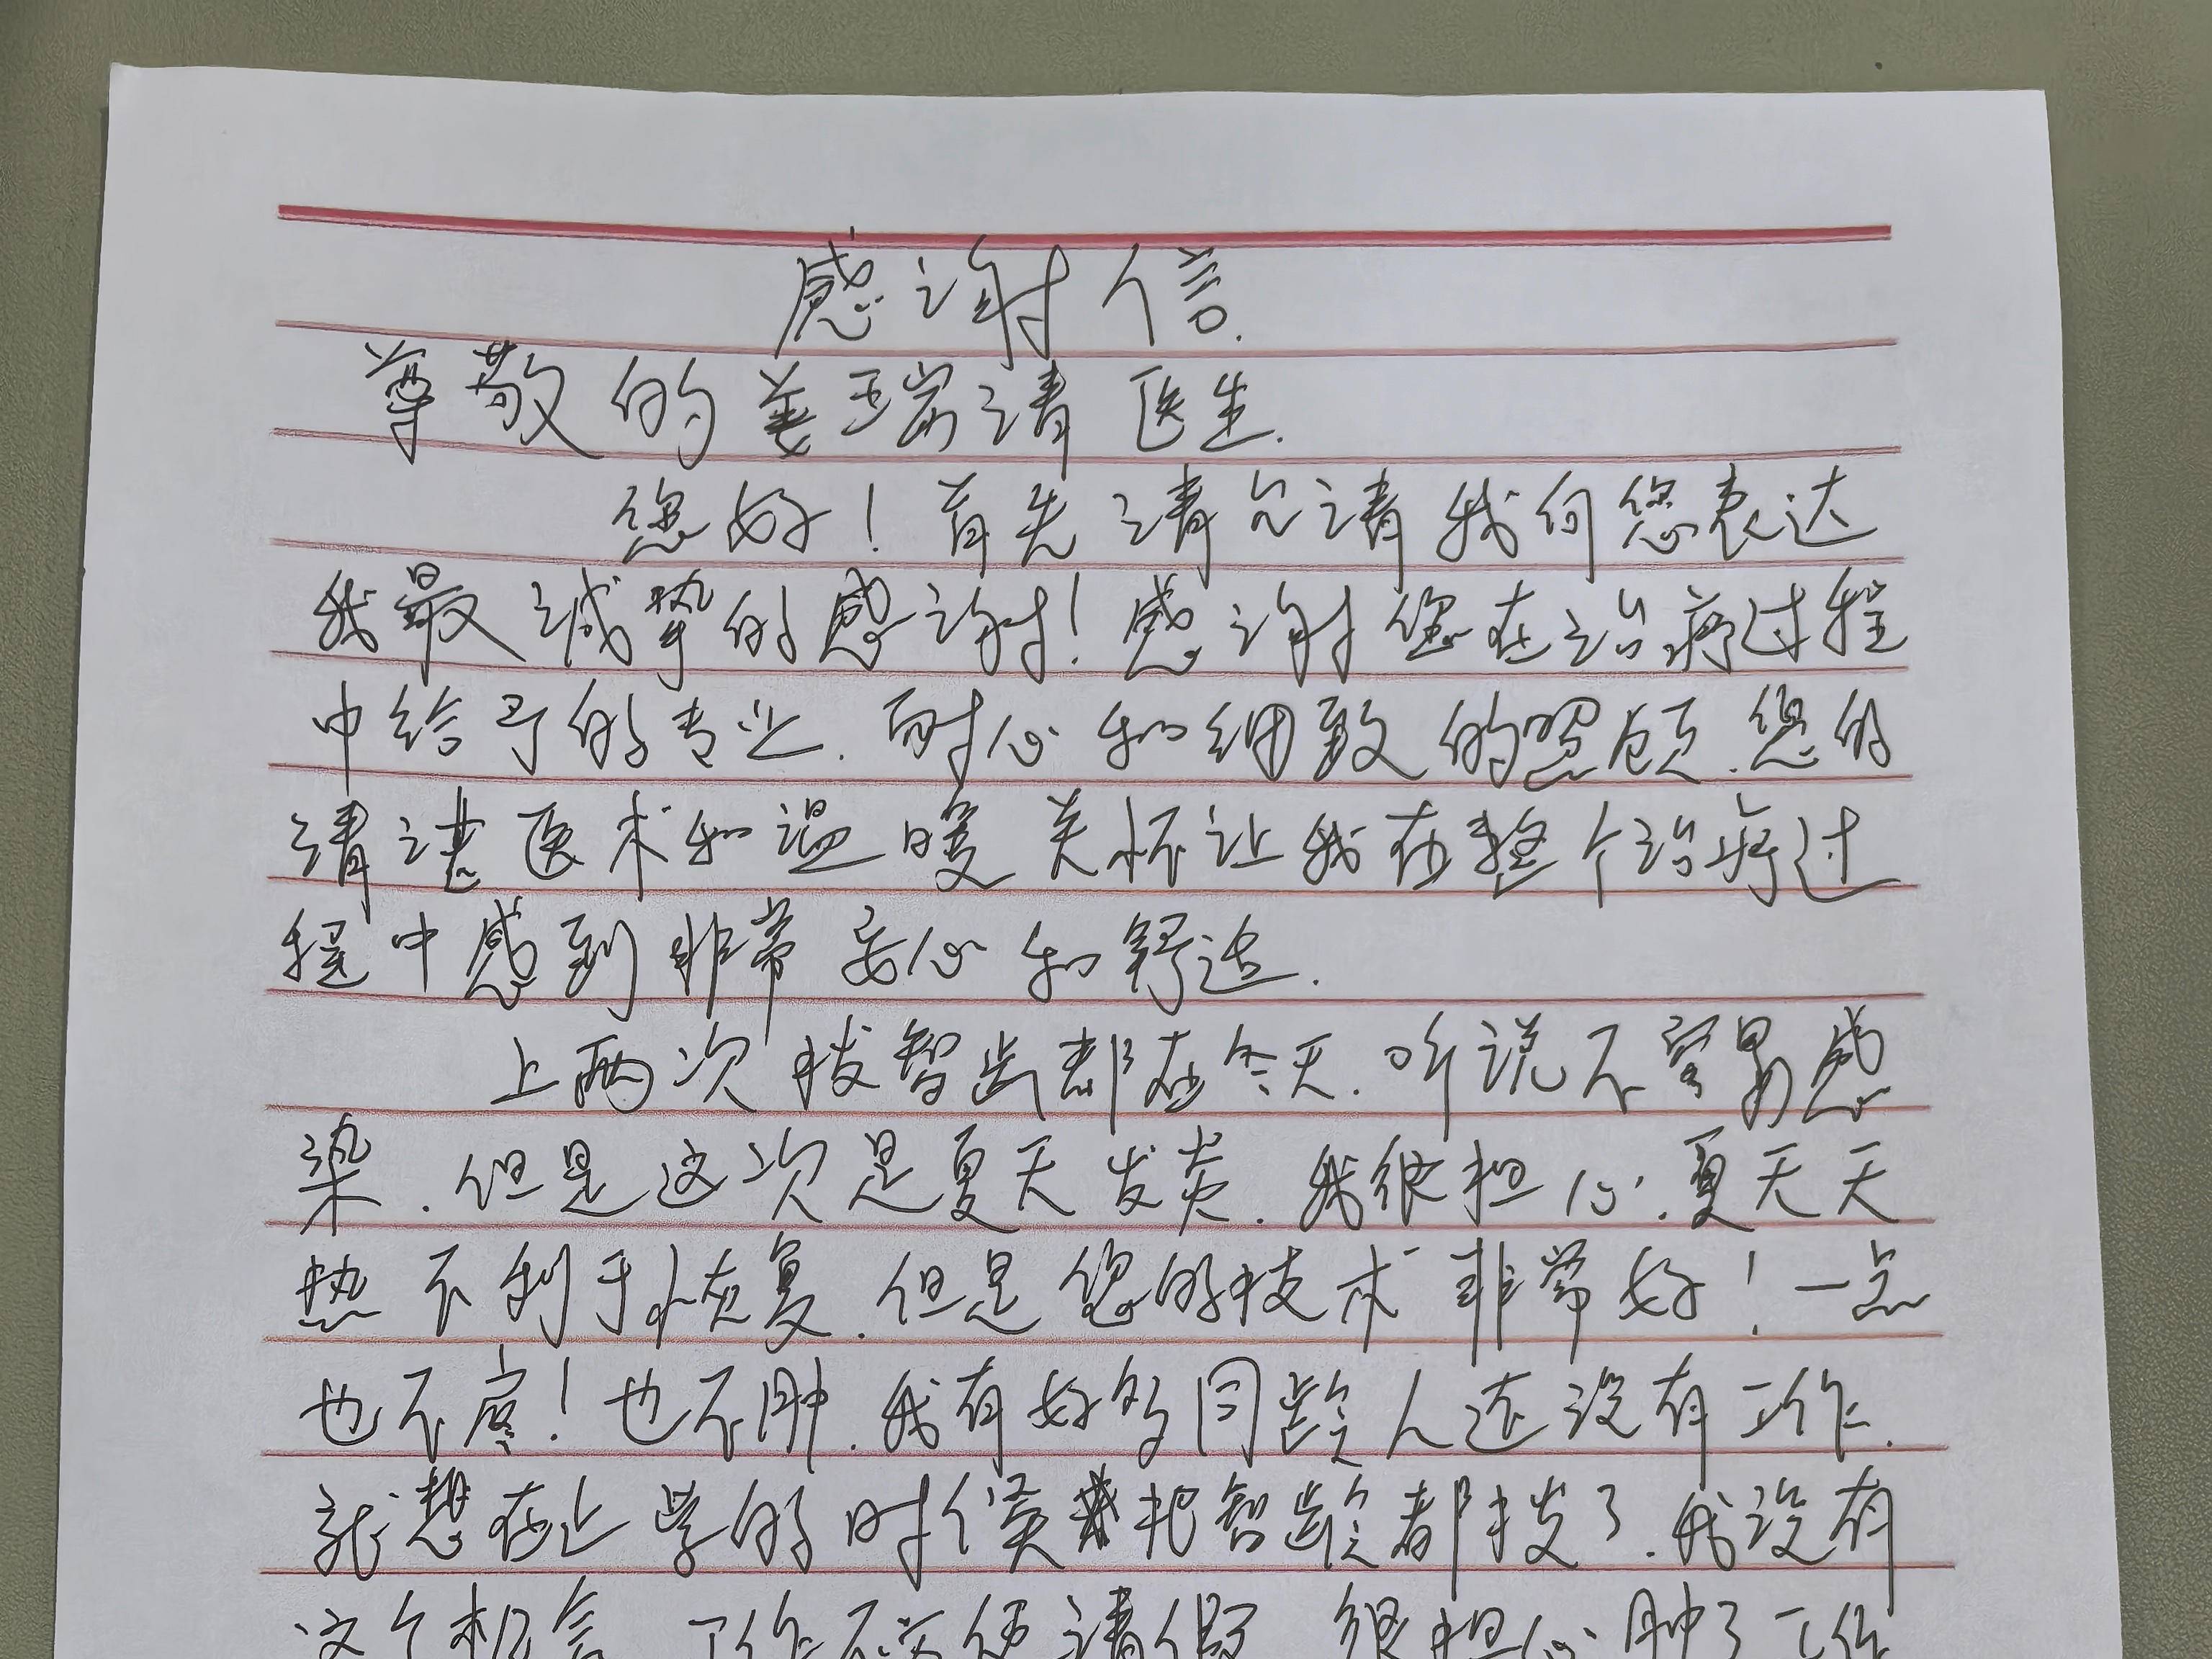 感谢信.
尊敬的姜瑞清医生.
您好！首先请允请我向您表达
我最诚挚的感谢！感谢您在治病过程
中给予的专业.耐心和细致的照顾.您的
清湛医术和温暖关怀让我在整个治病过
程中感到非常安心和舒适.
上两次拔智齿都在今天.听说不容易感
染.但是这次是夏天发炎.我很担心.夏天天
热不利于恢复.但是您的技术非常好！一点
也不疼！也不肿.我有好多同龄人还没有工作.
就想在上学的时候把智龄都拔了.我没有
这个机会 工作不方便请假 很担心肿了工作